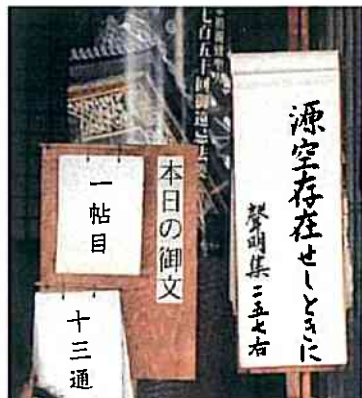 源空存在せしときに
聲明集二五七右
七百五十回御遠忌
本日の御文
一帖目
十三通